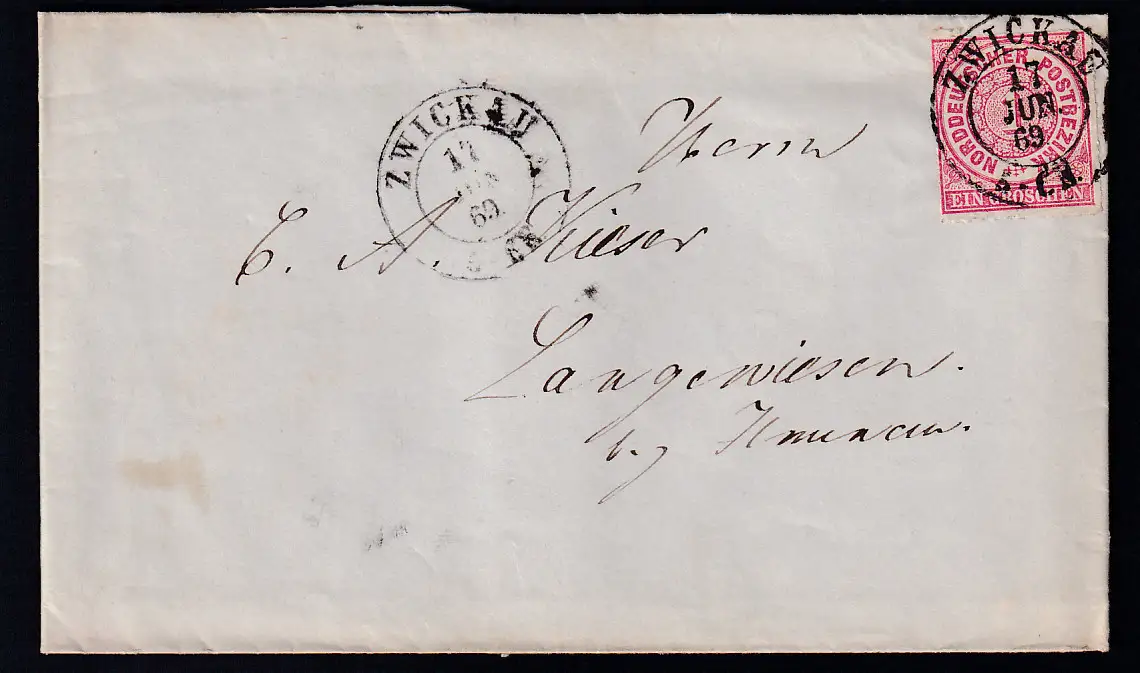 ZWICKAU
17
JUN
69
NORDDEUTSCHER POSTBEZIRK
EIN GROSCHEN
ZWICKAU
17
JUN
69
Herrn
C. A. Kieser
Langewiesen.
b. Ilmenau.